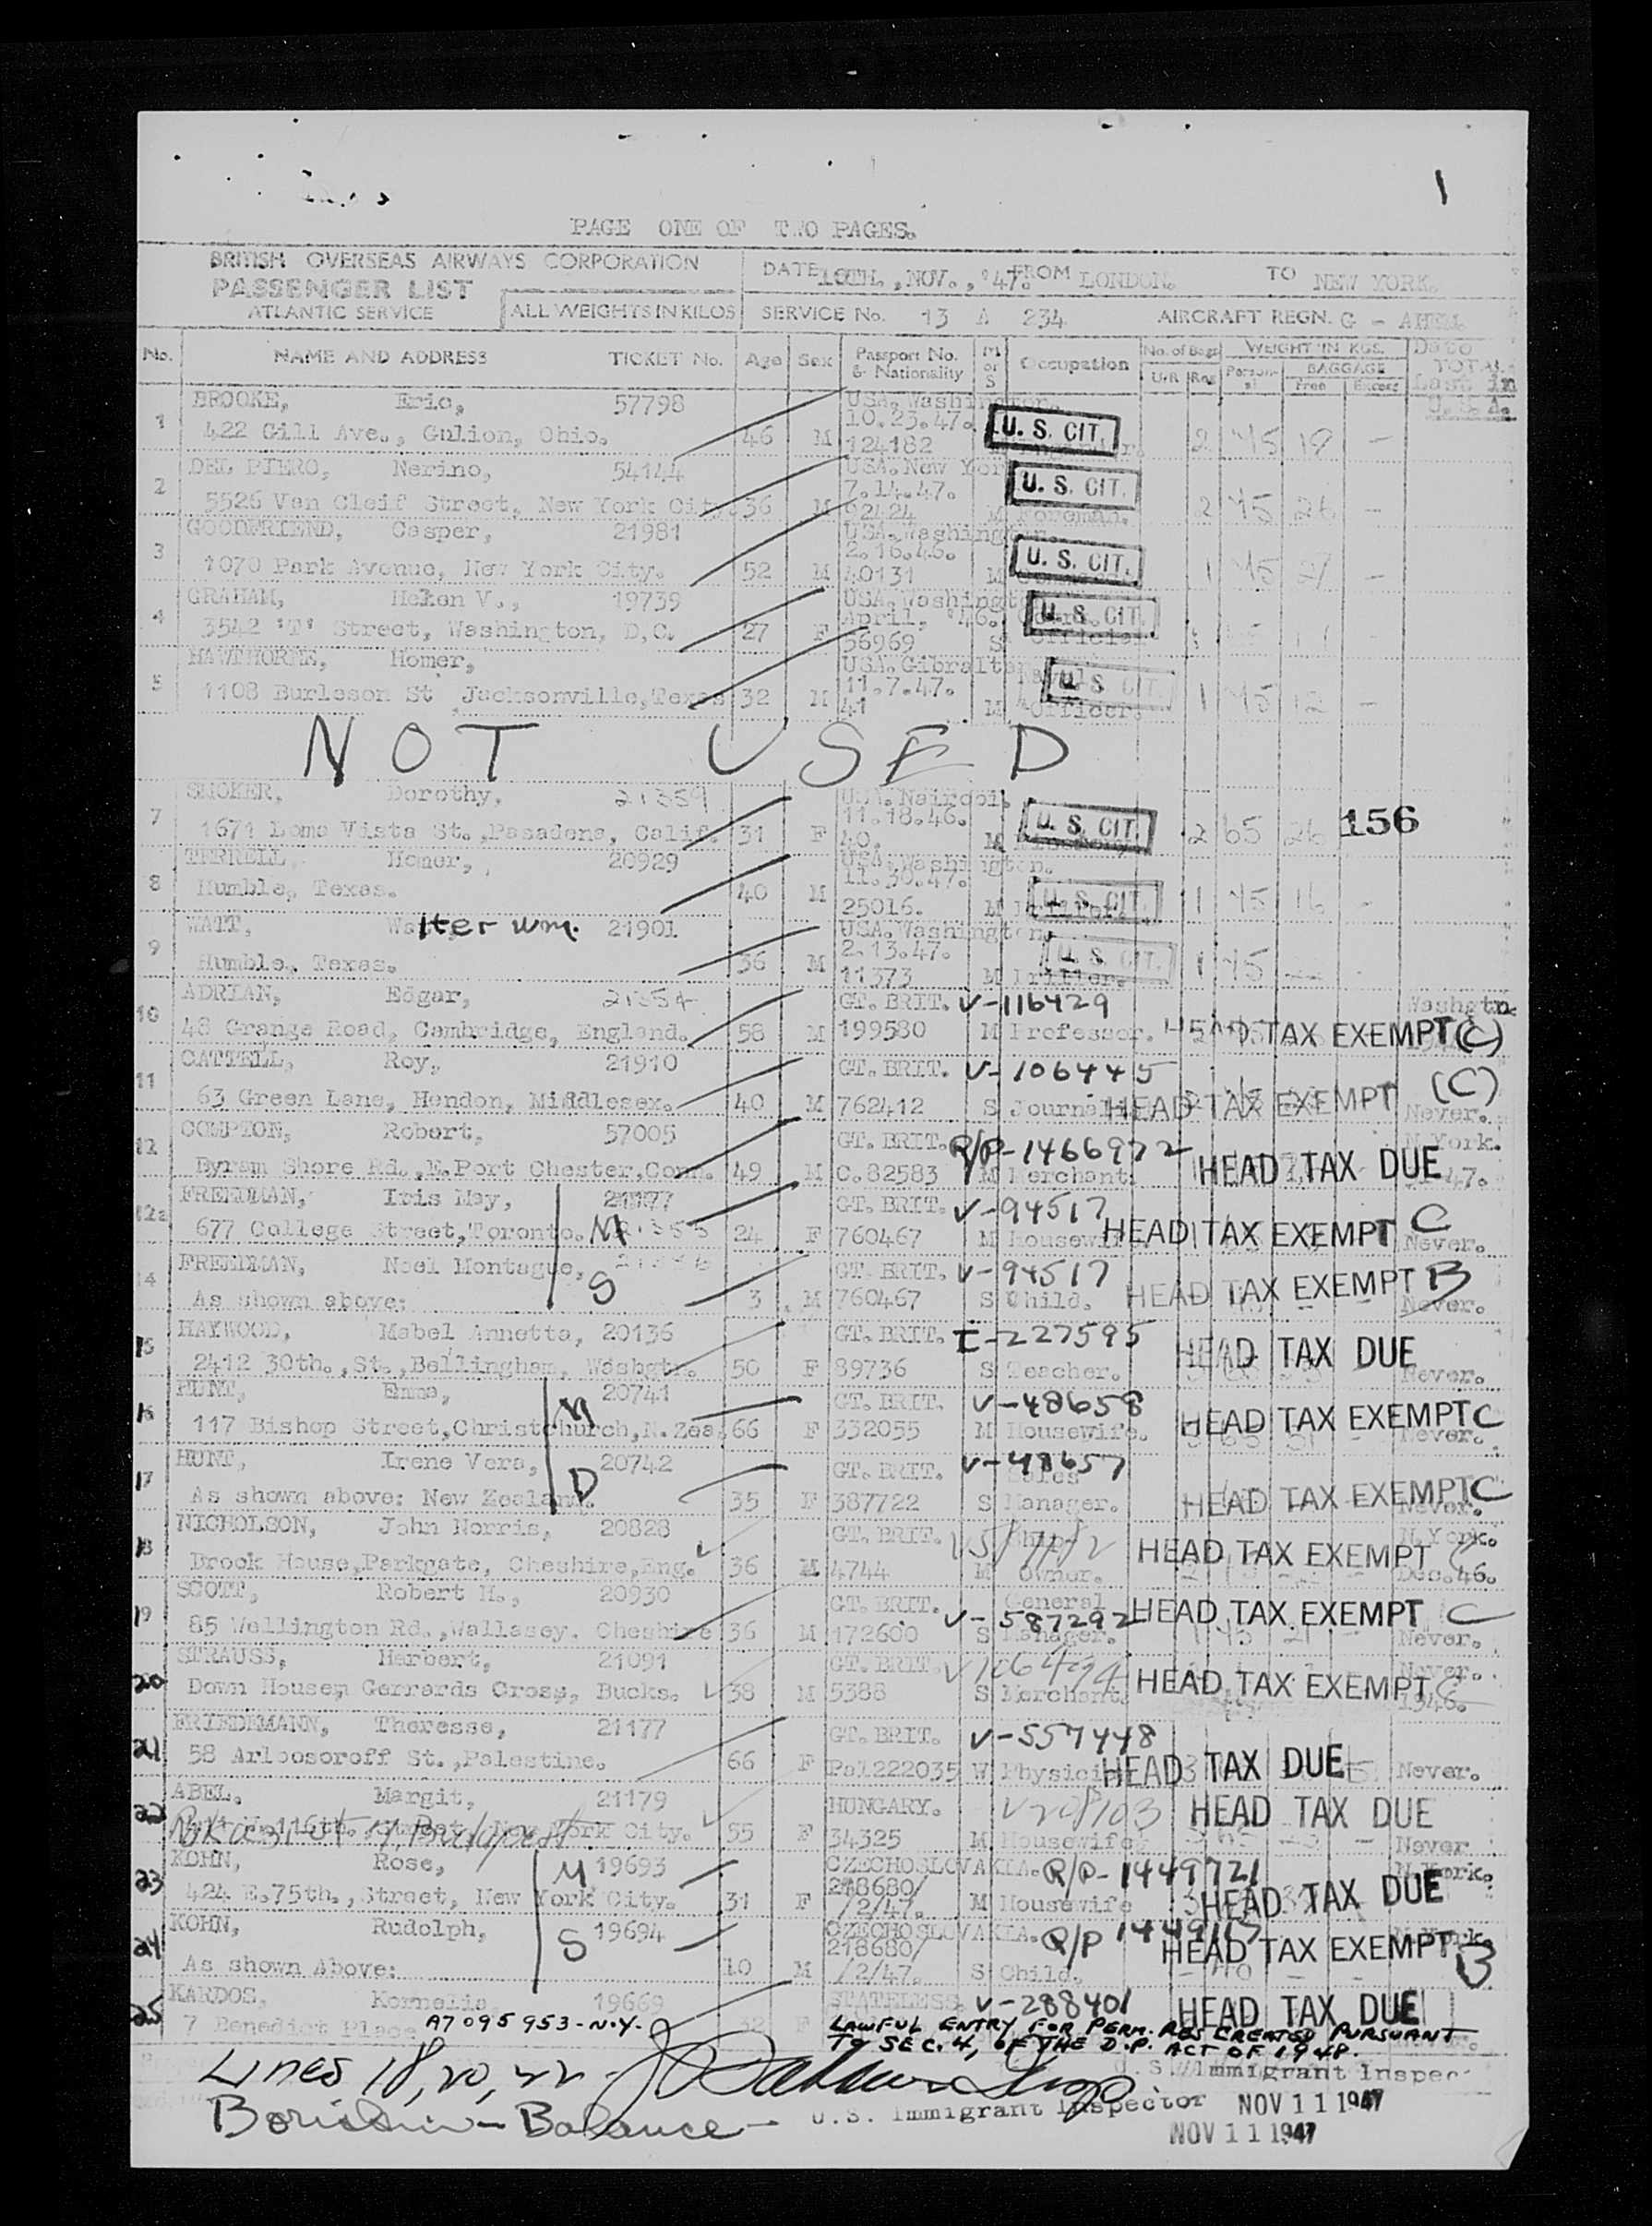 1
PAGE ONE OF TWO PAGES.
BRITISH OVERSEAS AIRWAYS CORPORATION
PASSENGER LIST
ATLANTIC SERVICE
ALL WEIGHTS IN KILOS
DATE 10TH., NOV., '47. FROM LONDON. TO NEW YORK.
SERVICE No. 13 A 234 AIRCRAFT REGN. G - AHEM
No. NAME AND ADDRESS TICKET No. Age Sex Passport No. & Nationality M or S Occupation No. of Bags U/R Reg WEIGHT IN KGS. Person-al BAGGAGE Free Excess Date TOTAL Last in U.S.A.
BROOKE, Eric, 57798 USA. Washington.
1 422 Gill Ave., Galion, Ohio. 46 M 10.23.47. 124182 U. S. CIT. 2 75 19 -
DEL PIERO, Nerino, 54144 USA. New York
2 5526 Van Cleif Street, New York City. 36 M 7.14.47. 92424 M Foreman. U. S. CIT. 2 75 26 -
GOODFRIEND, Casper, 21981 USA. Washington.
3 1070 Park Avenue, New York City. 52 M 2.16.46. 40131 M U. S. CIT. 1 75 21 -
GRAHAM, Helen V., 19739 USA. Washington
4 3542 'T' Street, Washington, D,C. 27 F April, '46. 56969 S Official U. S. CIT.
HAWTHORNE, Homer, USA. Gibralter Naval
5 1108 Burleson St Jacksonville, Texas 32 M 11.7.47. 41 M Officer. U. S. CIT. 1 75 12 -
NOT USED
SMOKER, Dorothy, 21359 USA. Nairobi.
7 1671 Loma Vista St., Pasadena, Calif. 31 F 11.18.46. 40. M U. S. CIT. 2 65 26 156
TERRELL, Homer, 20929 USA. Washington.
8 Humble, Texas. 40 M 11.30.47. 25016. M Driller. U. S. CIT. 1 75 16 -
WATT, Walter Wm. 21901 USA. Washington.
9 Humble, Texas. 36 M 2.13.47. 11373 M Driller. U. S. CIT. 1 75
ADRIAN, Edgar, 21354 GT. BRIT. V-116429 Washgtn.
10 48 Grange Road, Cambridge, England. 58 M 199580 M Professor. HEAD TAX EXEMPT (C)
CATTELL, Roy, 21910 GT. BRIT. V-106445 (C)
11 63 Green Lane, Hendon, Middlesex. 40 M 762412 S Journalist HEAD TAX EXEMPT Never.
COMPTON, Robert, 57005 GT. BRIT. R/P-1466972 N.York.
12 Byram Shore Rd., E.Port Chester, Conn. 49 M C.82583 M Merchant. HEAD TAX DUE 47.
FREEDMAN, Iris May, 21177 GT. BRIT. V-94517
12a 677 College Street, Toronto. M 21355 24 F 760467 M Housewife HEAD TAX EXEMPT C Never.
FREEDMAN, Noel Montague, 21356 GT. BRIT. V-94517
14 As shown above: S 3 M 760467 S Child. HEAD TAX EXEMPT B Never.
HAYWOOD, Mabel Annetta, 20136 GT. BRIT. I-227595
15 2412 30th., St., Bellingham, Washgtn. 50 F 89736 S Teacher. HEAD TAX DUE Never.
HUNT, Emma, 20741 GT. BRIT. V-48658
16 117 Bishop Street, Christchurch, N. Zea. M 66 F 332055 M Housewife. HEAD TAX EXEMPT C Never.
HUNT, Irene Vera, 20742 GT. BRIT. V-48657 Sales
17 As shown above: New Zealand. D 35 F 387722 S Manager. HEAD TAX EXEMPT C Never.
NICHOLSON, John Norris, 20828 GT. BRIT. Ship N.York.
18 Brook House, Parkgate, Cheshire, Eng. 36 M 4744 M Owner. HEAD TAX EXEMPT C Dec. 46.
SCOTT, Robert H., 20930 GT. BRIT. V-587292 General
19 85 Wellington Rd., Wallasey. Cheshire 36 M 172600 S Manager. HEAD TAX EXEMPT C Never.
STRAUSS, Herbert, 21091 GT. BRIT. V106494 Never.
20 Down House, Gerrards Cross, Bucks. 38 M 5388 S Merchant. HEAD TAX EXEMPT C 1946.
FRIEDEMANN, Theresse, 21177 GT. BRIT. V-557448
21 58 Arloosoroff St., Palestine. 66 F Pal222035 W Physician HEAD TAX DUE Never.
ABEL, Margit, 21179 HUNGARY. V208103
22 Budapest New York City. 55 F 34325 M Housewife. HEAD TAX DUE Never
KOHN, Rose, M 19693 CZECHOSLOVAKIA. R/P-1449721 N.York.
23 424 E.75th., Street, New York City. 31 F 218680/ /2/47. M Housewife HEAD TAX DUE
KOHN, Rudolph, S 19694 CZECHOSLOVAKIA. R/P N.York.
24 As shown Above: 10 M 218680/ /2/47. S Child. HEAD TAX EXEMPT B
KARDOS, Kornelia 19669 STATELESS. V-288401 HEAD TAX DUE
25 7 Benedict Place A7095953-N.Y. 32 F LAWFUL ENTRY FOR PERM. RES CREATED PURSUANT
TO SEC. 4, OF THE D.P. ACT OF 1948.
Lines 18, 20, 22 - U. S. Immigrant Inspec
Balance - U.S. Immigrant Inspector NOV 11 1947
NOV 11 1947